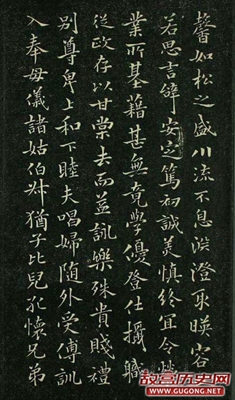 馨如松之盛川流不息淵澄取暎容止
若思言辭安定篤初誠美慎終宜令榮
業所基藉甚無竟學優登仕攝職
從政存以甘棠去而益詠樂殊貴賤禮
別尊卑上和下睦夫唱婦隨外受傅訓
入奉母儀諸姑伯叔猶子比兒孔懷兄弟
故宫历史网
WWW.GUGONG.NET